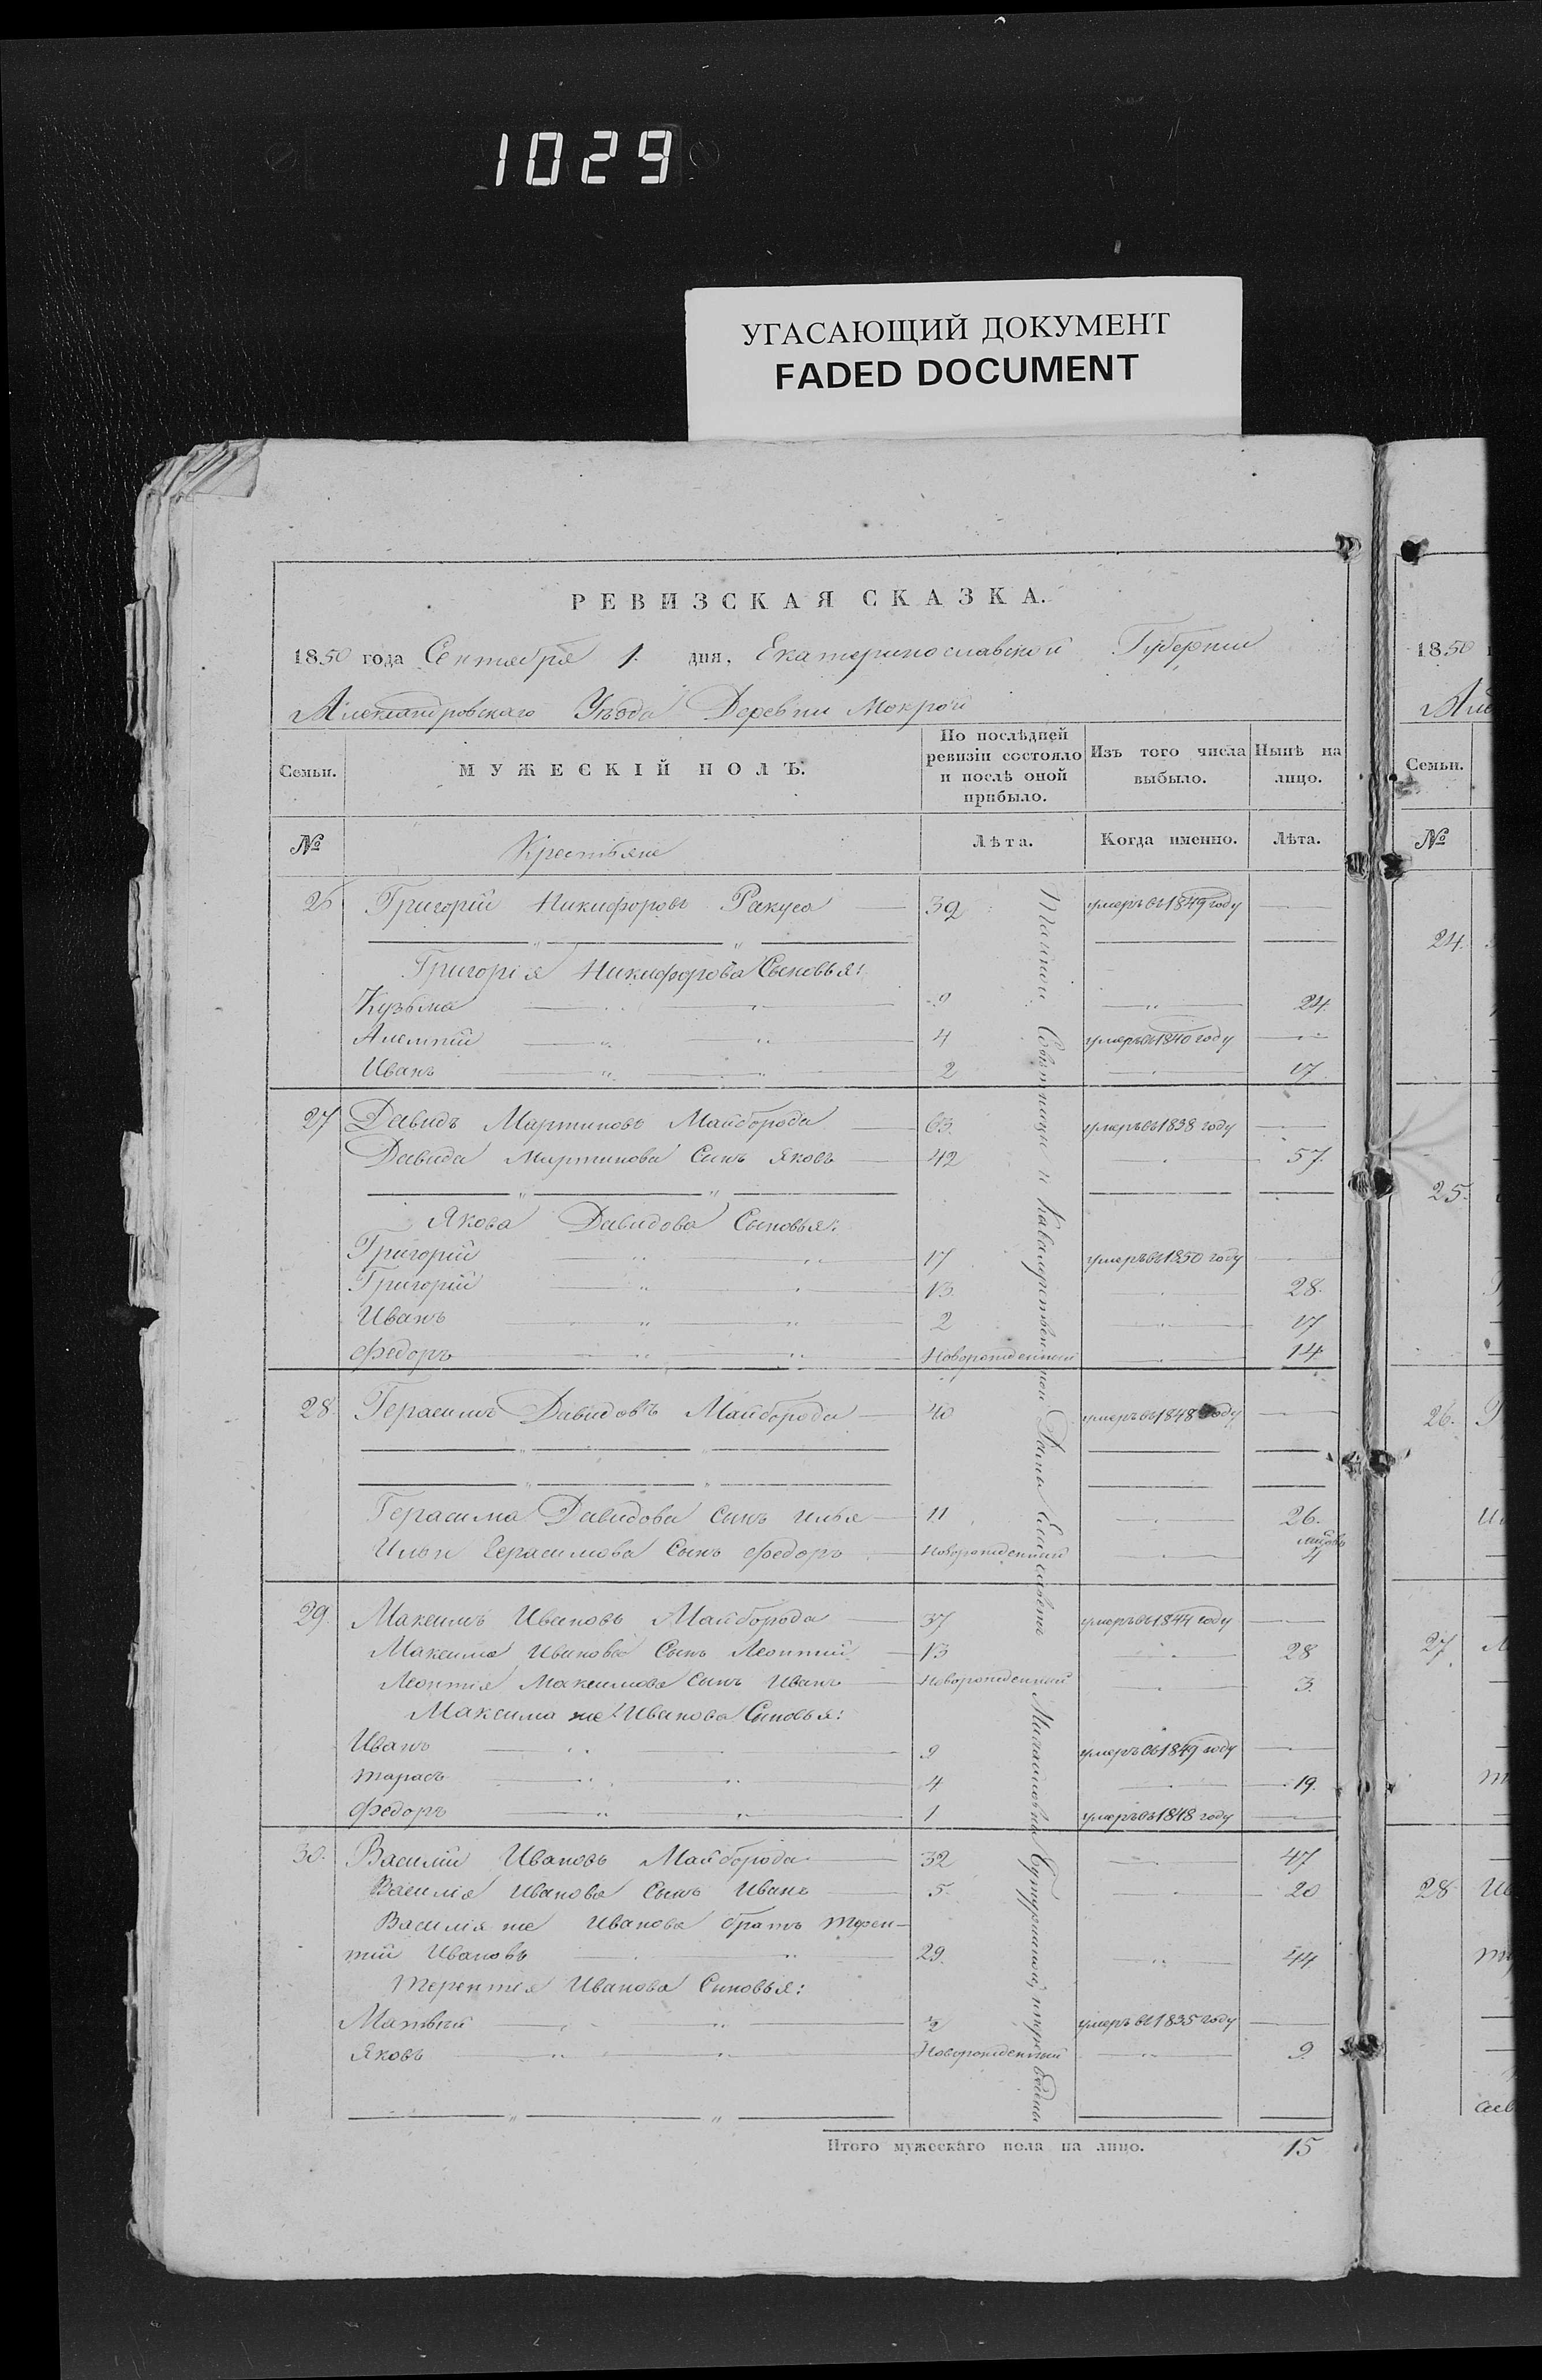 1029
УГАСАЮЩИЙ ДОКУМЕНТ
FADED DOCUMENT
РЕВИЗСКАЯ СКАЗКА.
1850 года Сентября 1. дня, Екатеринославской Губернии
Александровскаго Уѣзда Деревни Мокрой
Семьи. МУЖЕСКІЙ ПОЛЪ. По послѣдней ревизіи состояло и послѣ оной прибыло. Изъ того числа выбыло. Нынѣ на лицо.
№ Крестьяне Лѣта. Когда именно. Лѣта.
26 Григорій Никифоровъ Ракуса 39 умеръ въ 1849 году
Григорія Никифорова Сыновья:
Кузьма 9 24
4 умеръ въ 1840 году
Иванъ 2 17
27 Давидъ Мартиновъ Майборода 63. умеръ въ 1838 году
Давида Мартинова Сынъ Яковъ 42 57.
Якова Давидова Сыновья:
Григорій 17 умеръ въ 1850 году
Григорій 13. 28.
Иванъ 2 17
Федоръ Новорожденный 14
28. Герасимъ Давидовъ Майборода 40 умеръ въ 1848 году
Герасима Давидова Сынъ Илья 11 26.
Ильи Герасимова Сынъ Федоръ Новорожденный 4
29. Максимъ Ивановъ Майборода 37 умеръ въ 1844 году
Максима Иванова Сынъ Леонтий 13 28
Леонтія Максимова Сынъ Иванъ Новорожденный 3.
Максима же Иванова Сыновья:
Иванъ 9 умеръ въ 1849 году
Тарасъ 4 19.
Федоръ 1 умеръ въ 1848 году
30. Василій Ивановъ Майборода 32 47
Василія Иванова Сынъ Иванъ 5. 20
Василія же Иванова братъ Терен-
тій Ивановъ 29. 44
Терентія Иванова Сыновья:
Матвѣй умеръ въ 1835 году
Яковъ Новорожденный 9.
Итого мужескаго пола на лицо. 15
Тайной Совѣтницы и Кавалерственной Дамы Елисаветы Михайловны Бутурлиной,
1850
Семьи.
№
24.
25.
26.
27
28